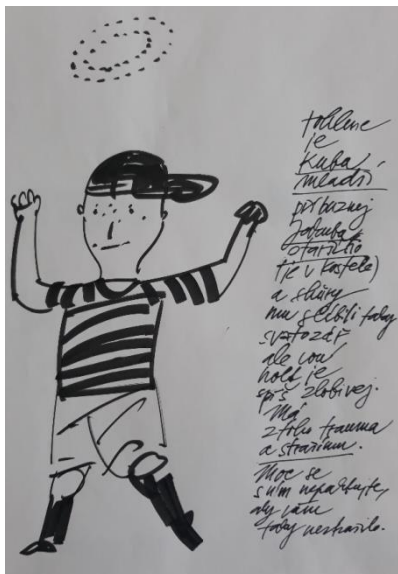 tohlenc
je
Kuba,
mladší
příbuznej
Jakuba
staršího
(je v kostele)
a skúry
mu slíbili taky
svatozář,
ale von
holt je
spíš zlobivej.
Má
z toho trauma
a strašim.
Moc se
s nim nepárejte,
aby vám
taky nestrašilo.